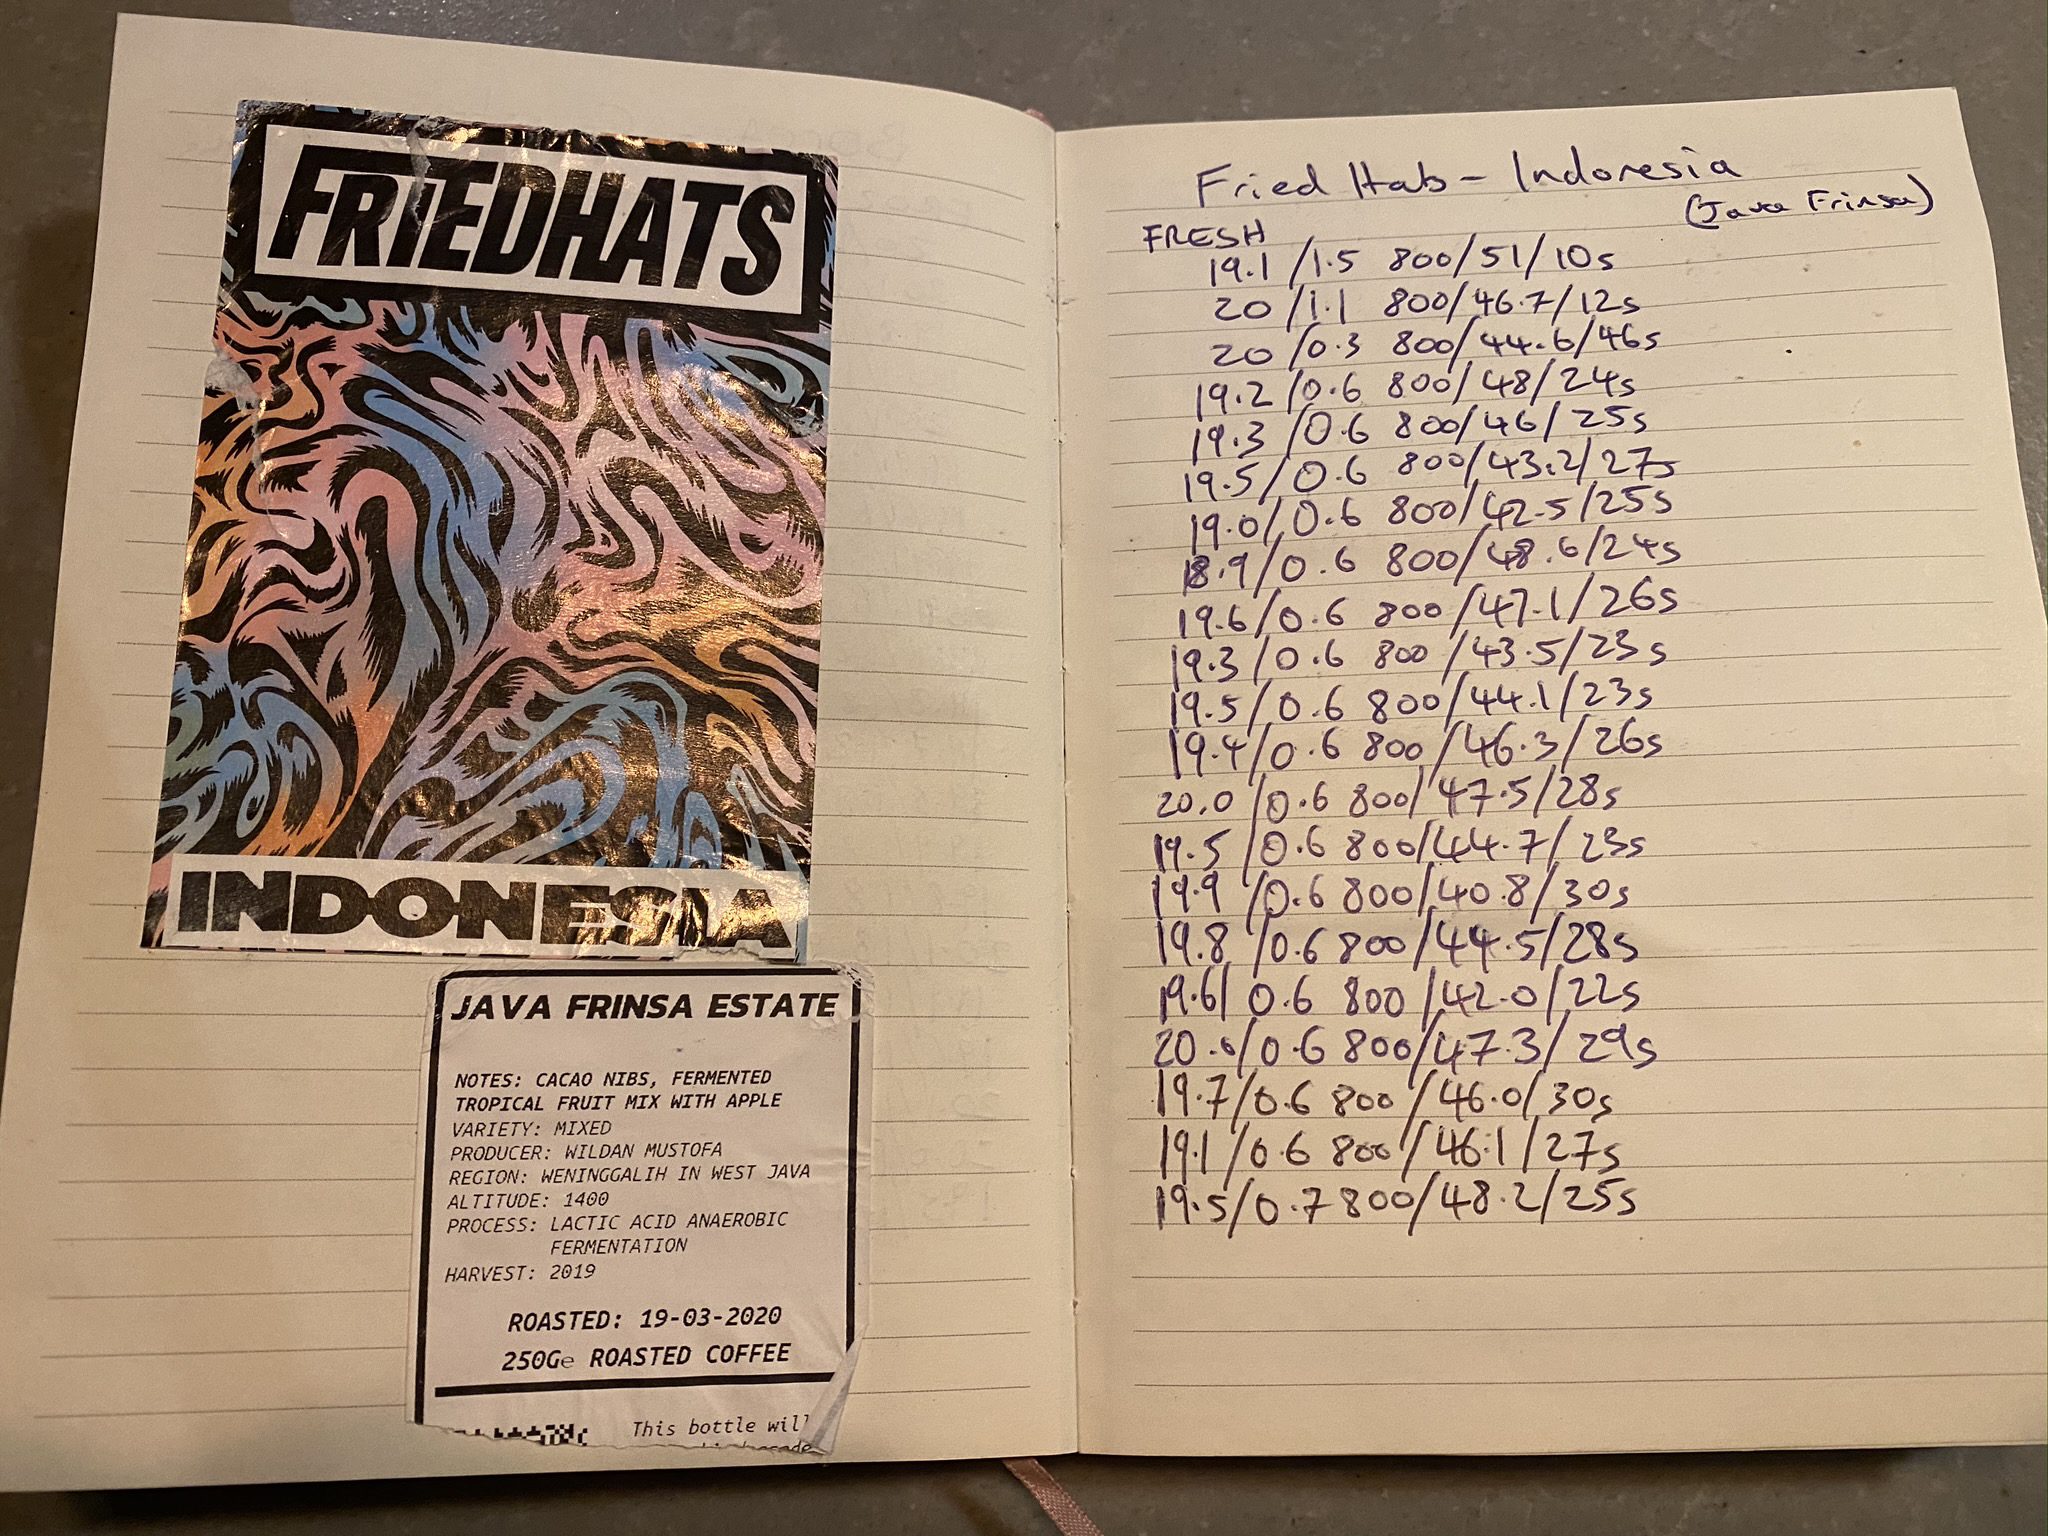 FRIEDHATS
INDONESIA
JAVA FRINSA ESTATE
NOTES: CACAO NIBS, FERMENTED
TROPICAL FRUIT MIX WITH APPLE
VARIETY: MIXED
PRODUCER: WILDAN MUSTOFA
REGION: WENINGGALIH IN WEST JAVA
ALTITUDE: 1400
PROCESS: LACTIC ACID ANAEROBIC
FERMENTATION
HARVEST: 2019
ROASTED: 19-03-2020
250Ge ROASTED COFFEE
This bottle will
Fried Hats - Indonesia
(Java Frinsa)
FRESH
19.1 /1.5 800/51/10s
20 /1.1 800/46.7/12s
20 /0.3 800/44.6/46s
19.2 /0.6 800/48/24s
19.3 /0.6 800/46/25s
19.5/0.6 800/43.2/27s
19.0/0.6 800/42.5/25s
18.9/0.6 800/48.6/24s
19.6/0.6 800/47.1/26s
19.3/0.6 800/43.5/23s
19.5/0.6 800/44.1/23s
19.4/0.6 800/46.3/26s
20.0/0.6 800/47.5/28s
19.5/0.6 800/44.7/23s
19.9/0.6 800/40.8/30s
19.8/0.6 800/44.5/28s
19.6/0.6 800/42.0/22s
20.0/0.6 800/47.3/29s
19.7/0.6 800/46.0/30s
19.1/0.6 800/46.1/27s
19.5/0.7 800/48.2/25s